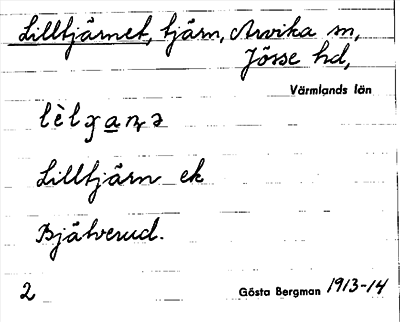 Lilltjärnet, tjärn, Arvika sn,
Jösse hd,
Värmlands län
Lilltjärn ek
Bjälverud.
2 Gösta Bergman 1913-14